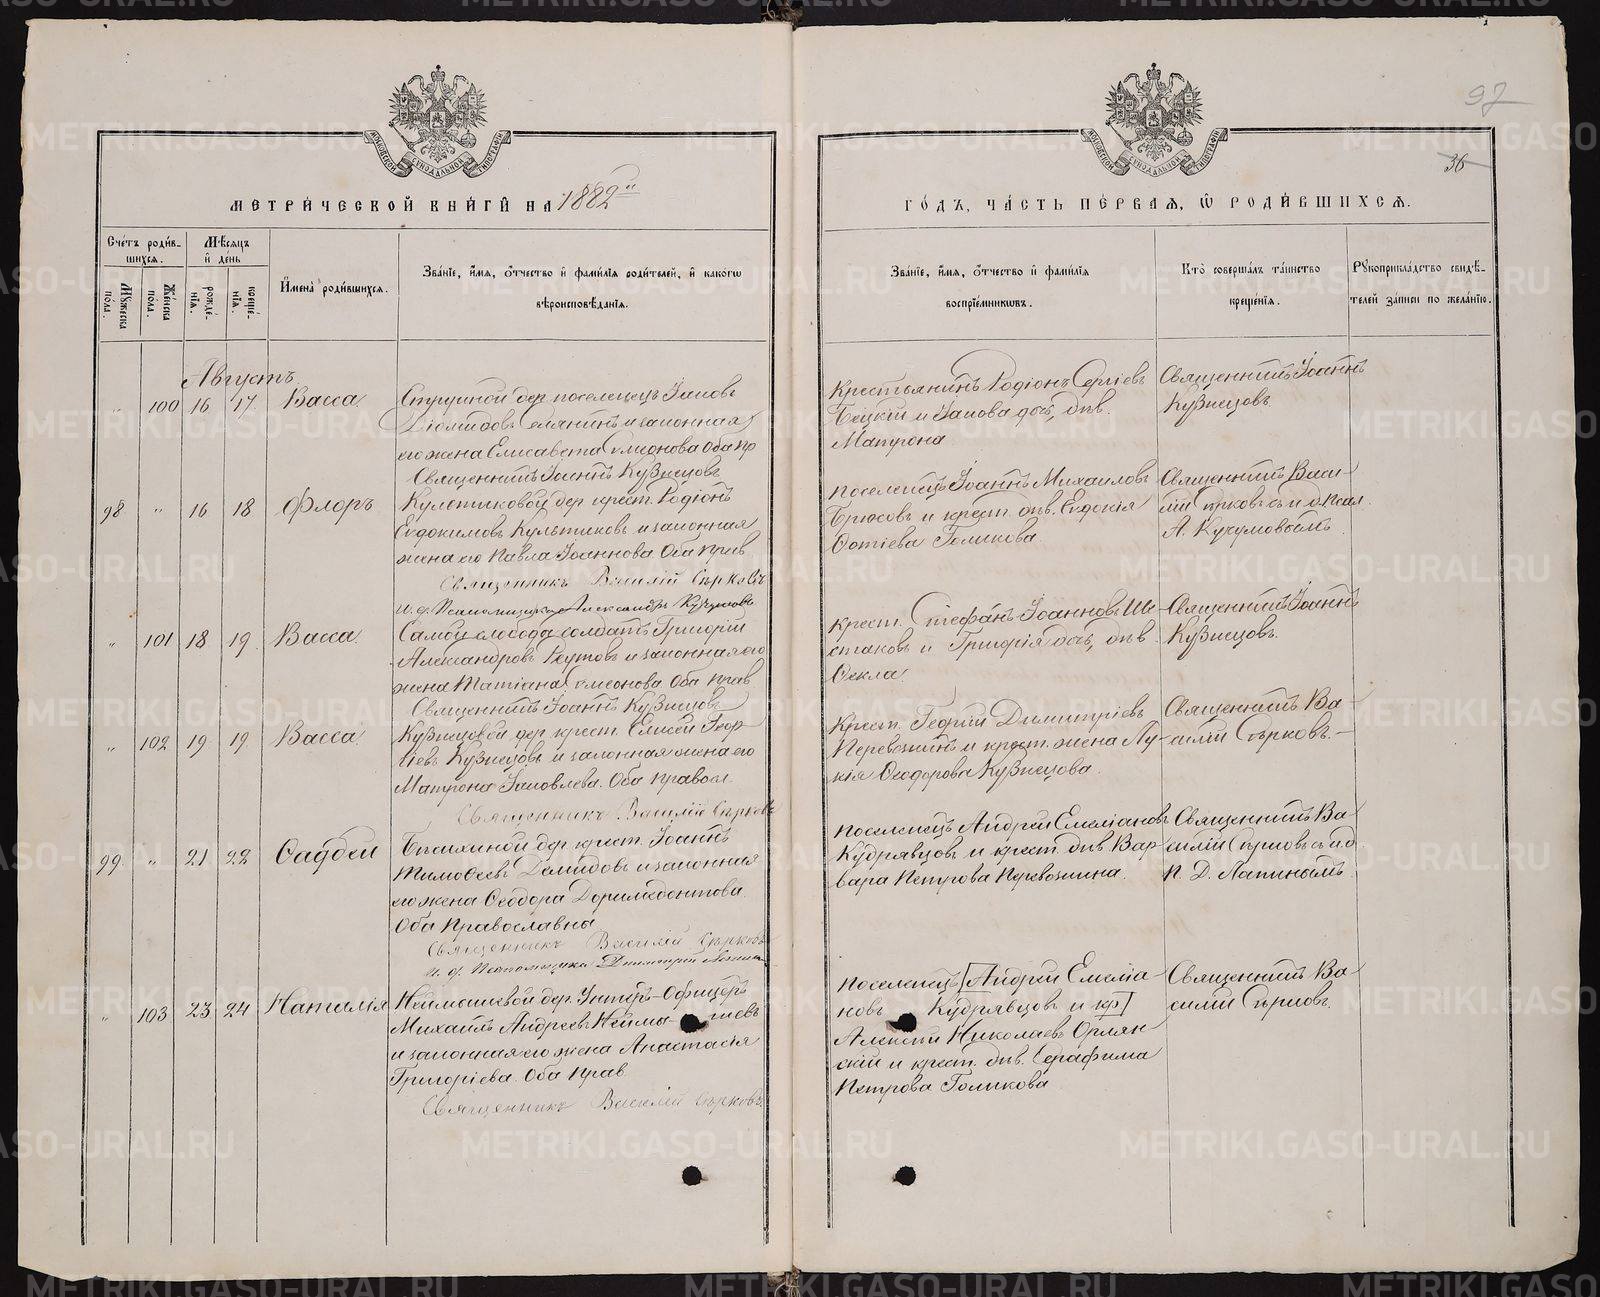 97
36
МЕТРИ́ЧЕСКОЙ КНИ́ГИ НА 1882й
ГО́ДЪ, ЧА́СТЬ ПЕ́РВАЯ, Ѡ РОДИ́ВШИХСЯ.
Сче́тъ роди́в-
шихся.
Му́жеска по́ла.
Же́нска по́ла.
Мѣ́сяцъ
и де́нь
рожде́-
нія.
креще́-
нія.
И́мена роди́вшихся.
Зва́ніе, и́мя, о́тчество и фами́лія роди́телей, и како́гѡ
вѣроисповѣ́данія.
Зва́ніе, и́мя, о́тчество и фами́лія
воспріе́мникѡвъ.
Кто̀ соверша́лъ та́инство
креще́нія.
Рꙋкоприкла́дство свидѣ́-
телей за́писи по жела́нію.
Августъ
" 100 16 17 Васса
поселенецъ Іаковъ
Діомидовъ и законная
его жена Елисавета Симеонова Оба пр
Священникъ Іоаннъ Кузнецовъ
Крестьянинъ Родіонъ Сергіевъ
и Іакова дочь, дѣв.
Матрона
Священникъ Іоаннъ
Кузнецовъ
98 " 16 18 Флоръ
Культиковой дер крест. Родіонъ
Евдокимовъ Культиковъ и законная
жена его Павла Іоаннова Оба прав
Священникъ Василій Сѣрковъ
и. д. Псаломщика Александръ Кучумовъ
Поселенецъ Іоаннъ Михаиловъ
Брюсовъ и крест. дѣв. Евдокія
Фотіева Голикова
Священникъ Васи-
лій Сѣрковъ съ и. д. Псал.
А. Кучумовымъ
" 101 18 19 Васса
Самой слобода солдатъ Григорій
Александровъ Реутовъ и законная его
жена Татіана Симеонова Оба прав
Священникъ Іоаннъ Кузнецовъ
Крест. Стефанъ Іоанновъ Ше-
стаковъ и Григорія дочь, дѣв.
Ѳекла
Священникъ Іоаннъ
Кузнецовъ.
" 102 19 19 Васса
Кузнецовой дер крест. Елисей Геор-
гіевъ Кузнецовъ и законная жена его
Матрона Іаковлева. Оба правосл.
Священникъ Василій Сѣрковъ
Крест. Георгій Димитріевъ
Перевозкинъ и крест. жена Лу-
кія Ѳеодорова Кузнецова.
Священникъ Ва-
силій Сѣрковъ.
99. " 21 22 Ѳаддей
дер крест. Іоаннъ
Тимоѳеевъ Демидовъ и законная
его жена Ѳеодора Доримедонтова
Оба Православна
Священникъ Василій Сѣрковъ
и. д. Псаломщика Димитрій Лапинъ
Поселенецъ Андрей Емеліановъ
Кудрявцовъ и крест. дѣв Вар-
вара Петрова Перевозкина.
Священникъ Ва-
силій Сѣрковъ съ и д
П. Д. Лапинымъ
" 103 23 24 Наталія
Неймышевой дер. Унтеръ-Офицеръ
Михаилъ Андреевъ Неймышевъ
и законная его жена Анастасія
Григоріева Оба прав
Священникъ Василій Сѣрковъ.
Поселенецъ [Андрей Емеліа-
новъ Кудрявцов и кр]
Алексій Николаевъ Орлян-
скій и крест. дѣв. Серафима
Петрова Голикова
Священникъ Ва-
силій Сѣрковъ